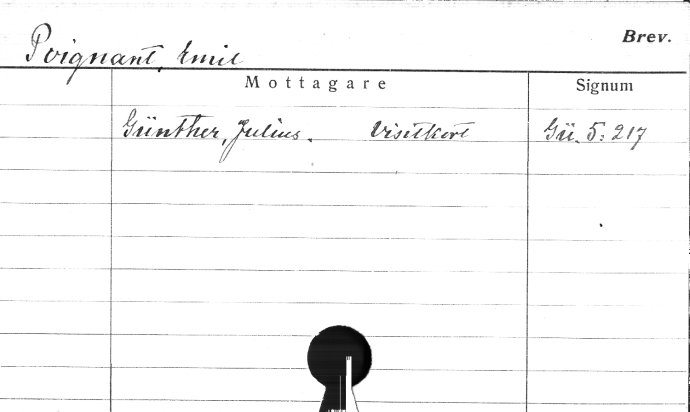 Brev.
Poignant, Emil
Mottagare Signum
Günther, Julius. Visitkort Gü. 5: 217